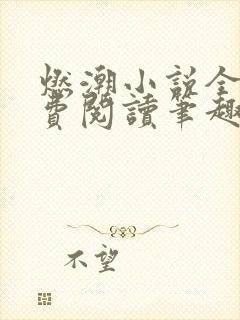 燃潮小說全
費閱讀筆趣
不望